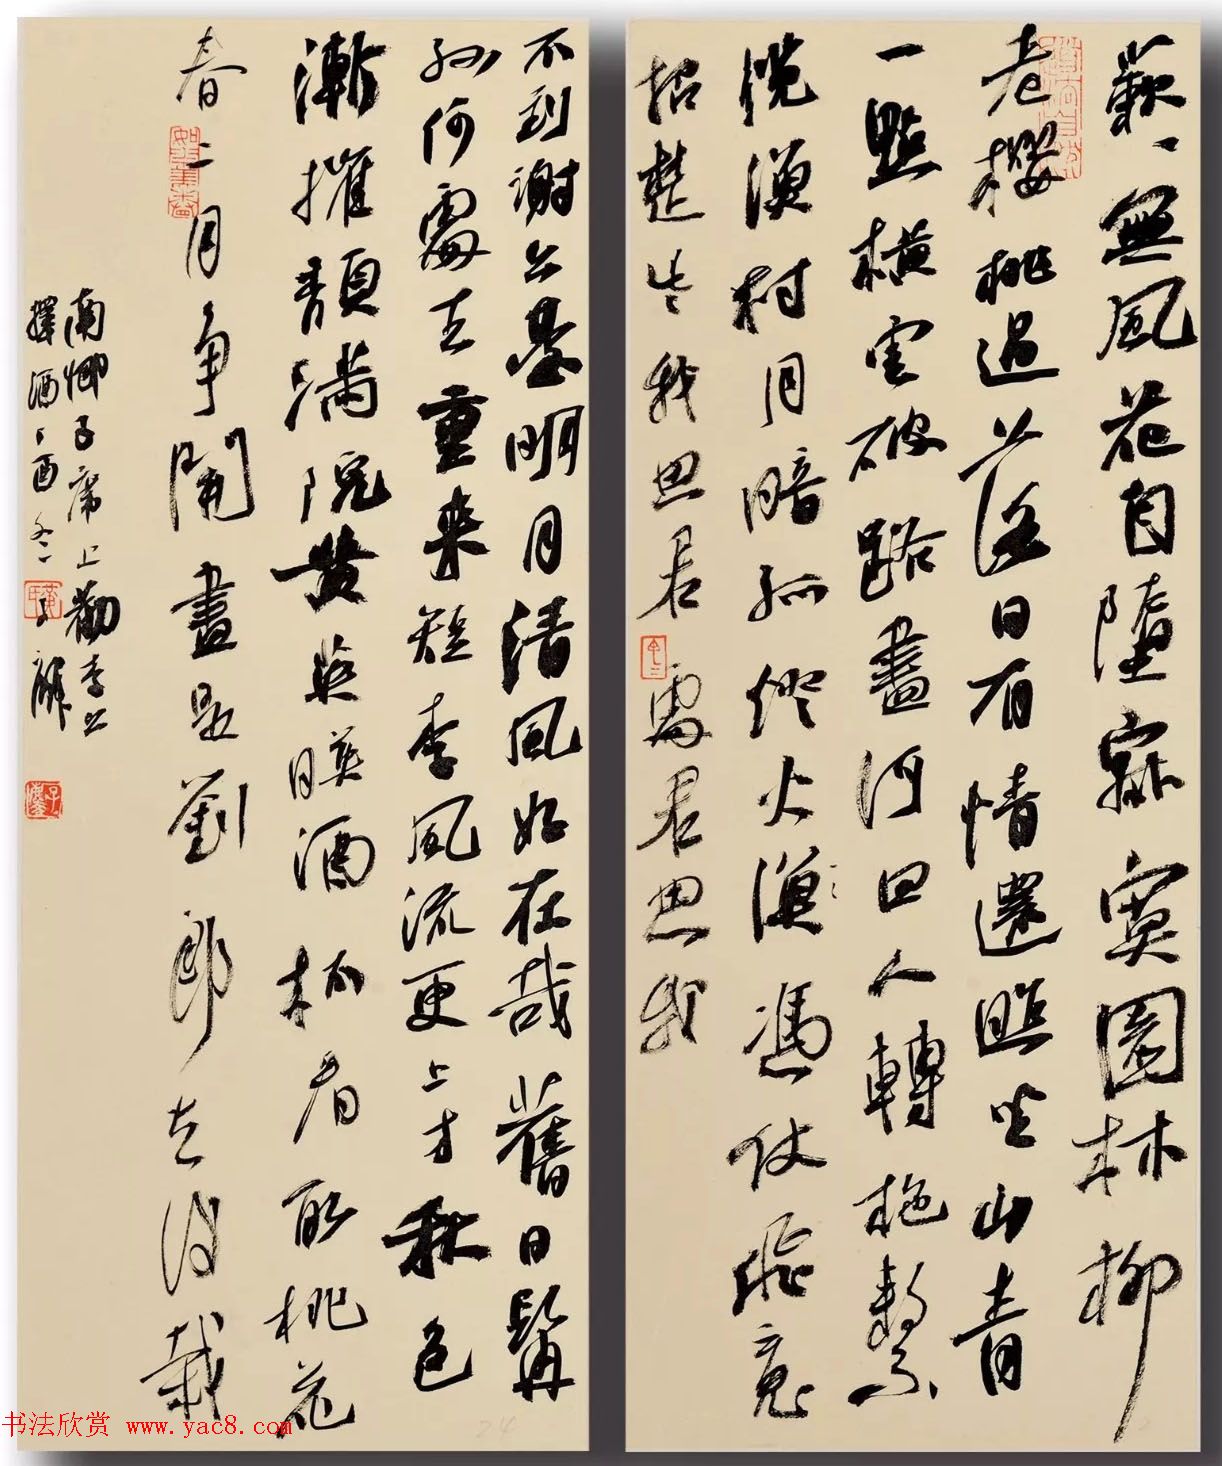 蔌、無風花自墮寂寞園林柳
老櫻桃過落日有情還照坐山青
一點橫雲破路盡河回人轉柂繫
纜漁村月暗孤燈火漁憑仗飛魂
招楚些我思君處君思我
不到謝公臺明月清風好在哉舊日髯
孫何處去重來短李風流更上才秋色
漸摧頹滿院黃英映酒杯看取桃花
春二月爭開盡是劉郎去後栽
南鄉子席上勸李公
擇酒丁酉冬
书法欣赏 www.yac8.com